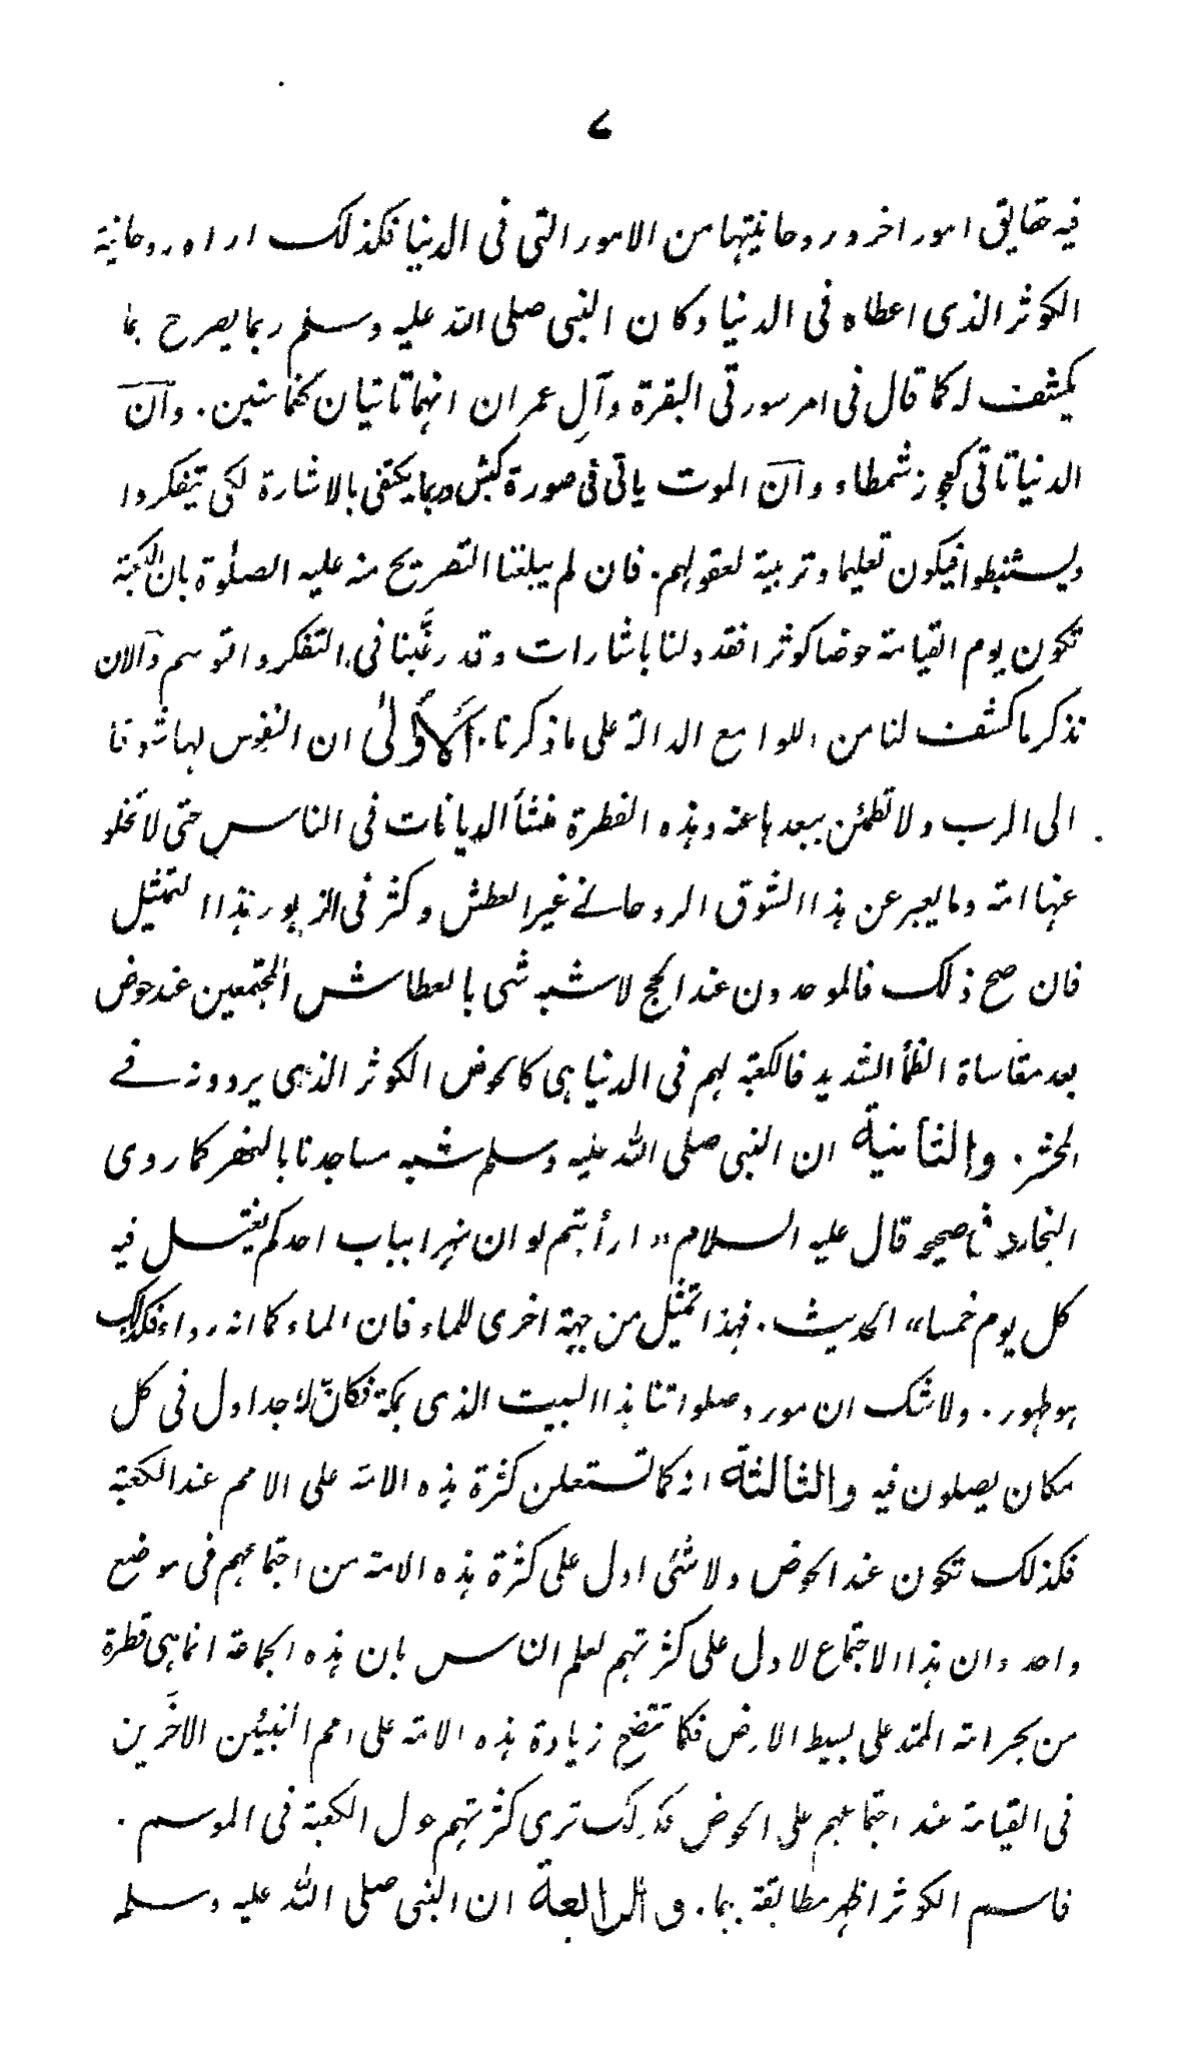 ۷
فيه حقايق امور اخر وروحانيتها من الامور التى فى الدنيا فكذلك اراه روحانية
الكوثر الذى اعطاه فى الدنيا وكان النبى صلى الله عليه وسلم ربما يصرح بما
يكشف له كما قال فى امر سورتى البقرة وآلِ عمران انهما تاتيان كغمامتين. وان
الدنيا تاتى كعجوز شمطاء وان الموت ياتى فى صورة كبش وربما يكتفى بالاشارة لكى يتفكروا
ويستنبطوا فيكون تعليما وتربية لعقولهم. فان لم يبلغنا التصريح منه عليه الصلوٰة بان الكعبة
تكون يوم القيامة حوضا كوثرا فقد دلنا باشارات وقد رغَّبنا فى التفكر والتوسم والآن
نذكر ما كشف لنا من اللوامع الدالة على ما ذكرنا. الأولىٰ ان النفوس لها شوقا
الى الرب ولا تطمئن ببعدها عنه وهذه الفطرة منشأ الديانات فى الناس حتى لا تخلو
عنها امة وما يعبر عن هذا الشوق الروحانے غير العطش وكثر فى الزبور هذا التمثيل
فان صح ذلك فالموحدون عند الحج لا شبه شى بالعطاش المجتمعين عند حوض
بعد مقاساة الظمأ الشديد فالكعبة لهم فى الدنيا هى كالحوض الكوثر الذى يردونه فے
المحشر. والثانية ان النبى صلى الله عليه وسلم شبه مساجدنا بالنهر كما روى
البخارى فى صحيحه قال عليه السلام "ارأيتم لو ان نهرا بباب احدكم يغتسل فيه
كل يوم خمسا" الحديث. فهذا تمثيل من جهة اخرى للماء فان الماء كما انه رواء فكذلك
هو طهور. ولا شك ان مورد صلواتنا هذا البيت الذى بمكة فكانّ له جداول فى كل
مكان يصلون فيه والثالثة انه كما تستعلن كثرة هذه الامة على الامم عند الكعبة
فكذلك تكون عند الحوض ولا شئى ادل على كثرة هذه الامة من اجتماعهم فى موضع
واحد وان هذا الاجتماع لا دل على كثرتهم لعلم الناس بان هذه الجماعة انما هى قطرة
من بحر امة الممتد على بسيط الارض فكما تتضح زيادة هذه الامة على امم النبيئين الآخَرين
فى القيامة عند اجتماعهم على الحوض فكذلك ترى كثرتهم حول الكعبة فى الموسم.
فاسم الكوثر اظهر مطابقة بهما. والرابعة ان النبى صلى الله عليه وسلم